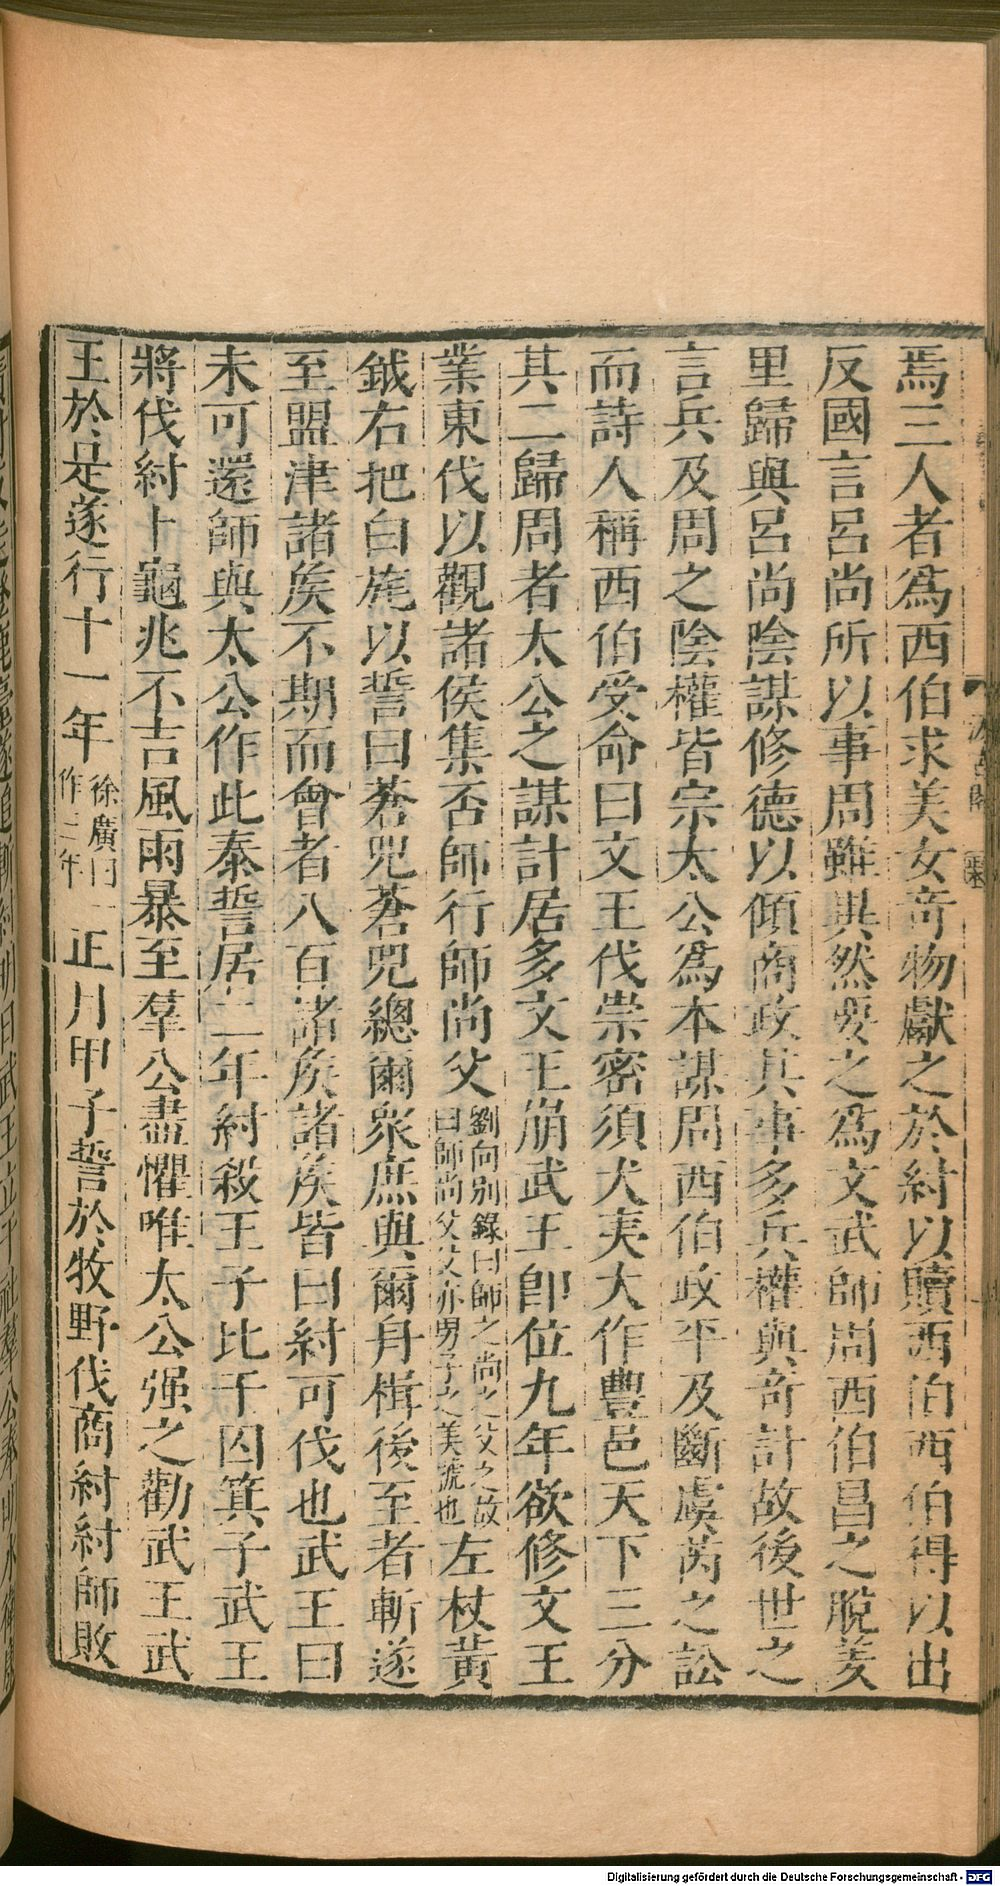 焉三人者爲西伯求美女奇物獻之於紂以贖西伯西伯得以出
反國言呂尚所以事周雖異然要之爲文武師周西伯昌之脫羑
里歸與呂尚陰謀修德以傾商政其事多兵權與奇計故後世之
言兵及周之陰權皆宗太公爲本謀周西伯政平及斷虞芮之訟
而詩人稱西伯受命曰文王伐崇密須犬夷大作豐邑天下三分
其二歸周者太公之謀計居多文王崩武王卽位九年欲修文王
業東伐以觀諸侯集否師行師尚父
劉向別錄曰師之尚之父之故
曰師尚父父亦男子之美號也
左杖黃
鉞右把白旄以誓曰蒼兕蒼兕總爾衆庶與爾舟楫後至者斬遂
至盟津諸矦不期而會者八百諸矦諸矦皆曰紂可伐也武王曰
未可還師與太公作此泰誓居二年紂殺王子比干囚箕子武王
將伐紂卜龜兆不吉風雨暴至羣公盡懼唯太公强之勸武王武
王於是遂行十一年
徐廣曰一
作三年
正月甲子誓於牧野伐商紂紂師敗
Digitalisierung gefördert durch die Deutsche Forschungsgemeinschaft - DFG